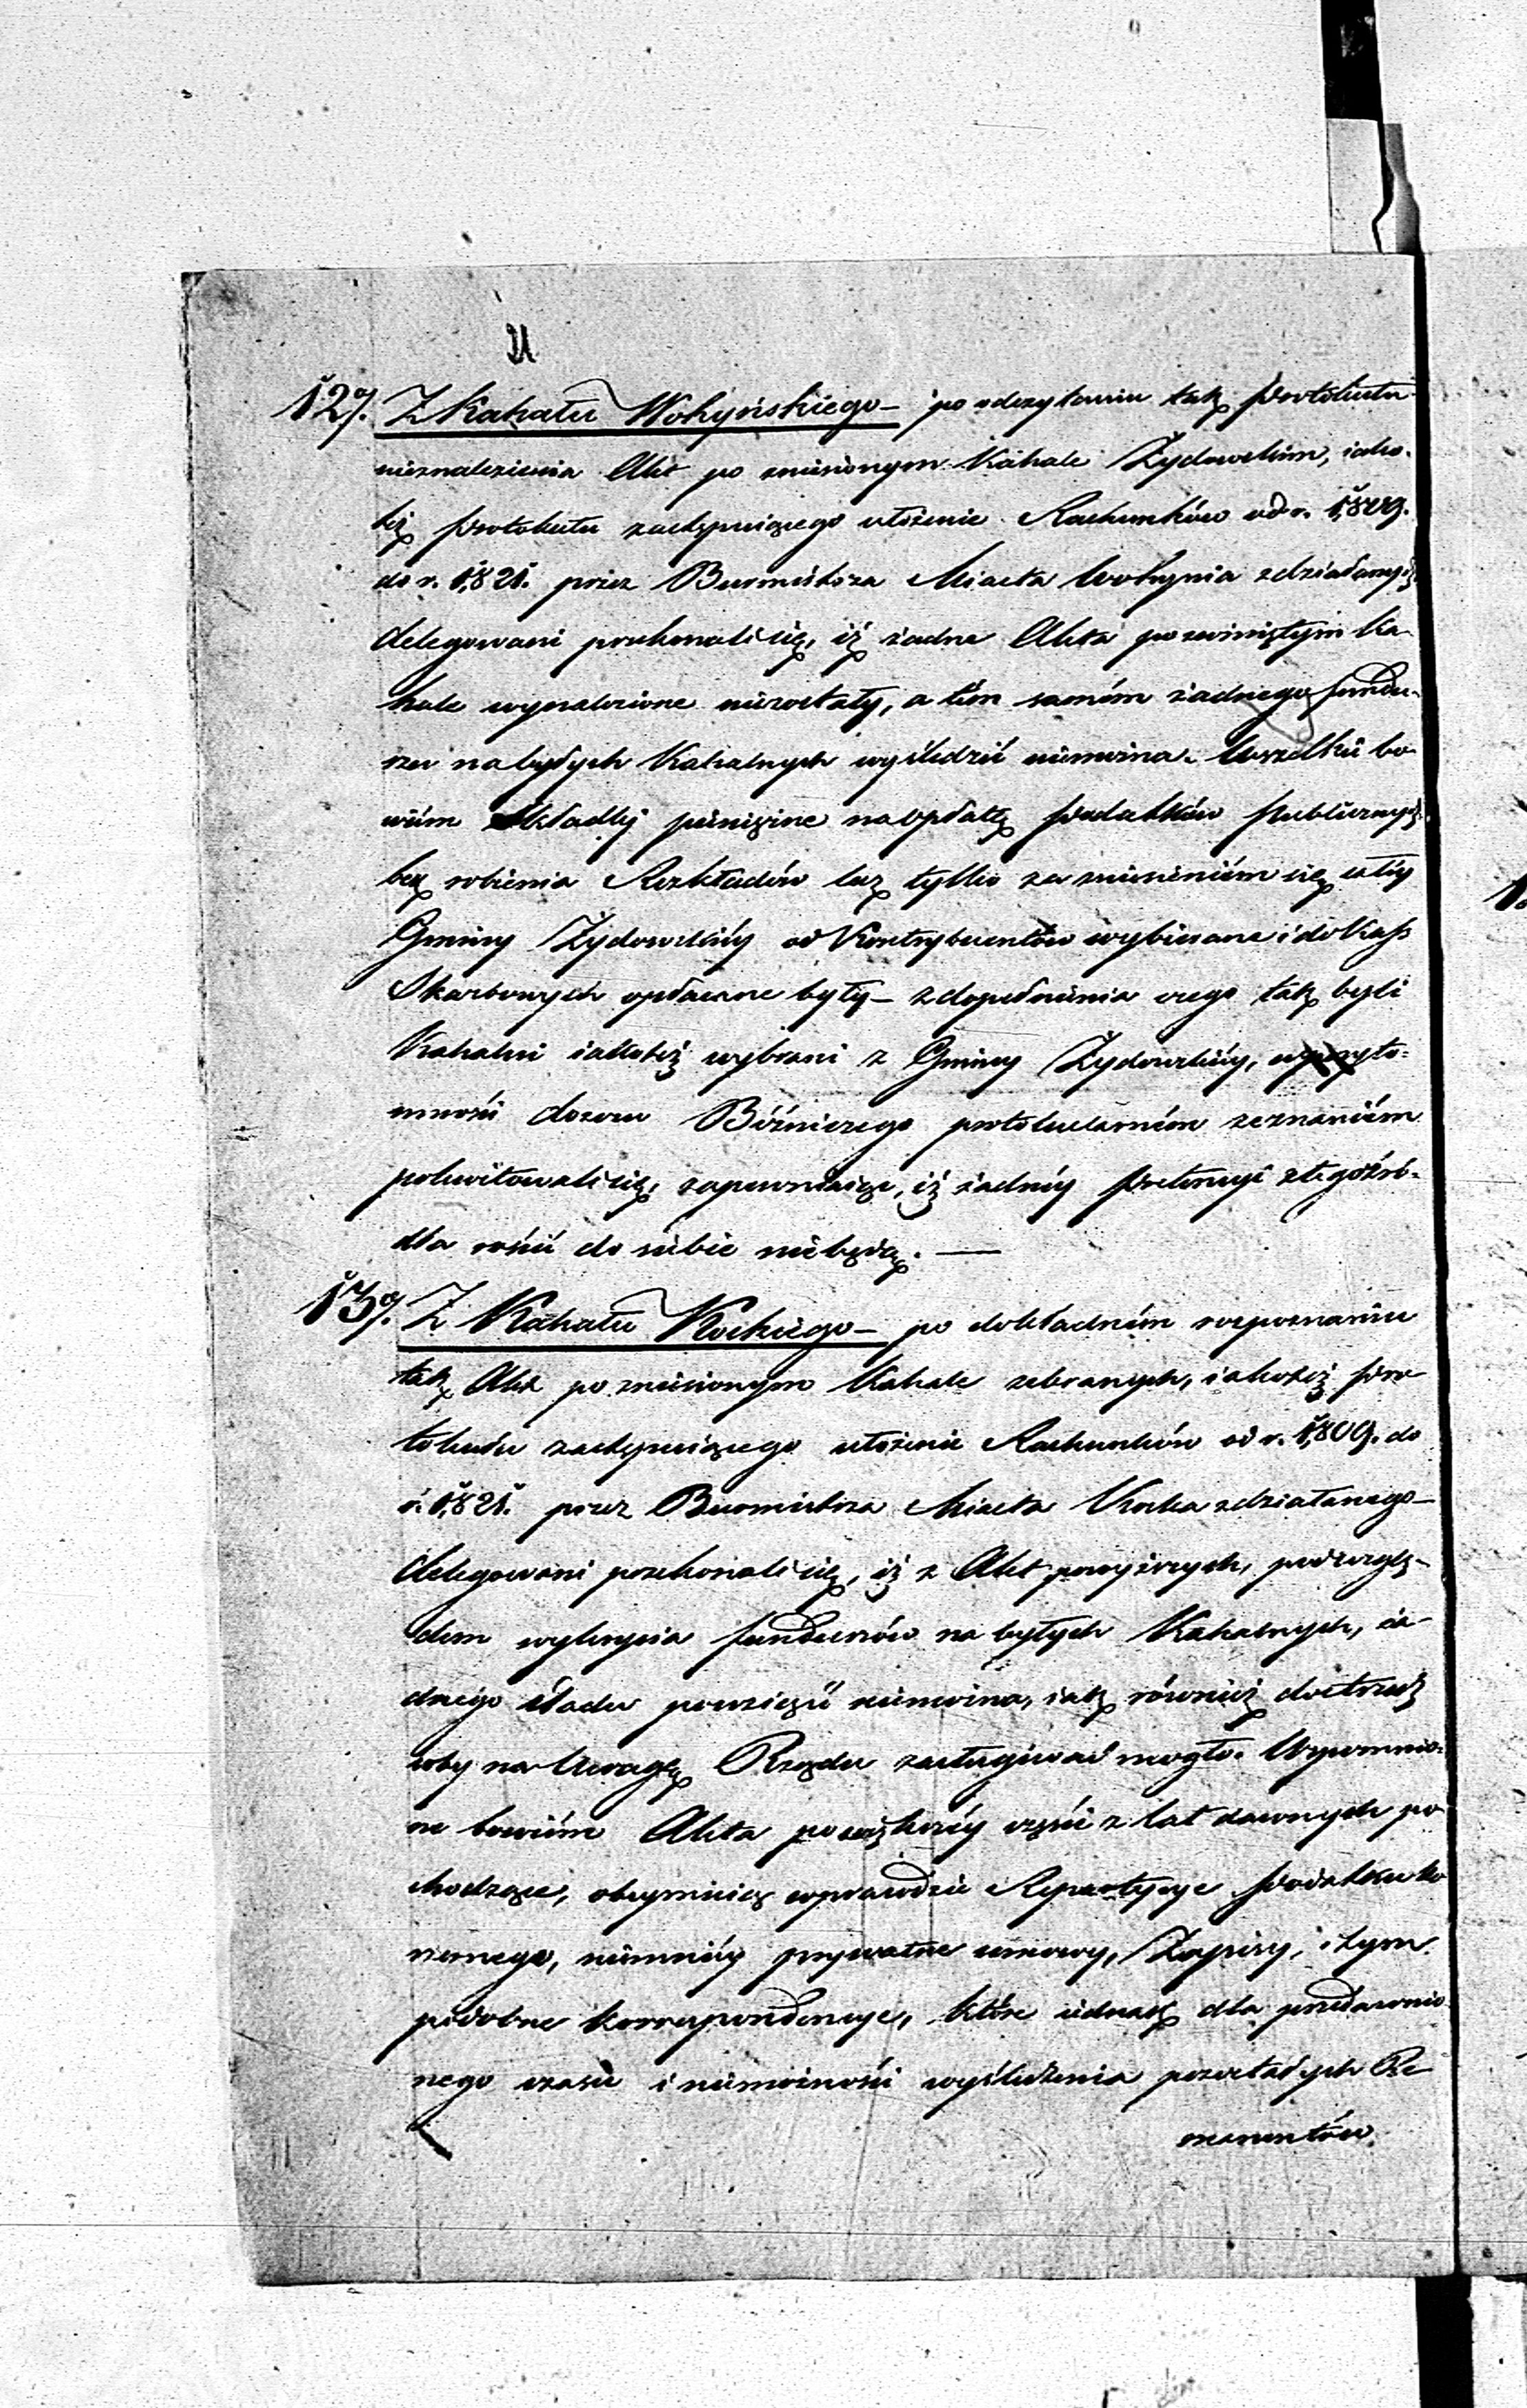 21
12º/. Z Kahału Wohyńskiego – po odczytaniu tak Protokułu
nieznalezienia Akt po zniesionym Kahale Żydowskim, iako-
też Protokułu zastępuiącego ułożenie Rachunków od r. 1809.
do r. 1821. przez Burmistrza Miasta Wohynia zdziałanych
Delegowani przekonali się, iż żadne Akta po zwiniętym Ka-
hale wynalezione niezostały, a tém samém żadnego fundu-
szu na byłych Kahalnych wyśledzić niemożna. Wszelkie bo-
wiém Składki pieniężne na opłatę Podatków Publicznych
bez robienia Rozkładów lecz tylko za zniesieniém się całéy
Gminy Żydowskiéy od Kontrybuentów wybierane i do Kass
Skarbowych opłacane były – z dopełnienia czego tak byli
Kahalni iakoteż wybrani z Gminy Żydowskiéy, w przyto-
mności dozoru Bóźniczego protokularném zeznaniém
pokwitowali się, zapewniaiąc, iż żadnéy Pretensyi z tego źró-
dła rościć do siebie niebędą. —
13º/. Z Kahału Kockiego – po dokładném rozpoznaniu
tak Akt po zniesionym Kahale zebranych, iakoteż Pro-
tokułu zastępuiącego ułożenie Rachunków od r. 1809. do
r. 1821. przez Burmistrza Miasta Kocka zdziałanego –
Delegowani przekonali się, iż z Akt powyższych, pod wzglę-
dem wykrycia funduszów na byłych Kahalnych, ża-
dnego śladu powziąść niemożna, iak również dostrzedz
coby na Uwagę Rządu zasługiwać mogło. Wspomnio-
ne bowiém Akta po większéy części z lat dawnych po-
chodzące, obeymuią wprawdzie Repartycye Podatku ko-
szernego, niemniéy prywatne umowy, Zapisy, i tym
podobne korrespondencye, które iednak dla przedawnio-
nego czasu i niemożności wyśledzenia pozostałych Re-
manentów